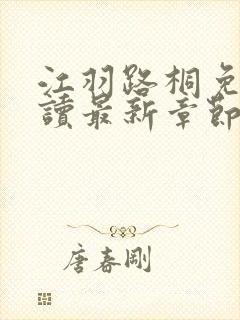 江羽路桐免
讀最新章節
唐春剛